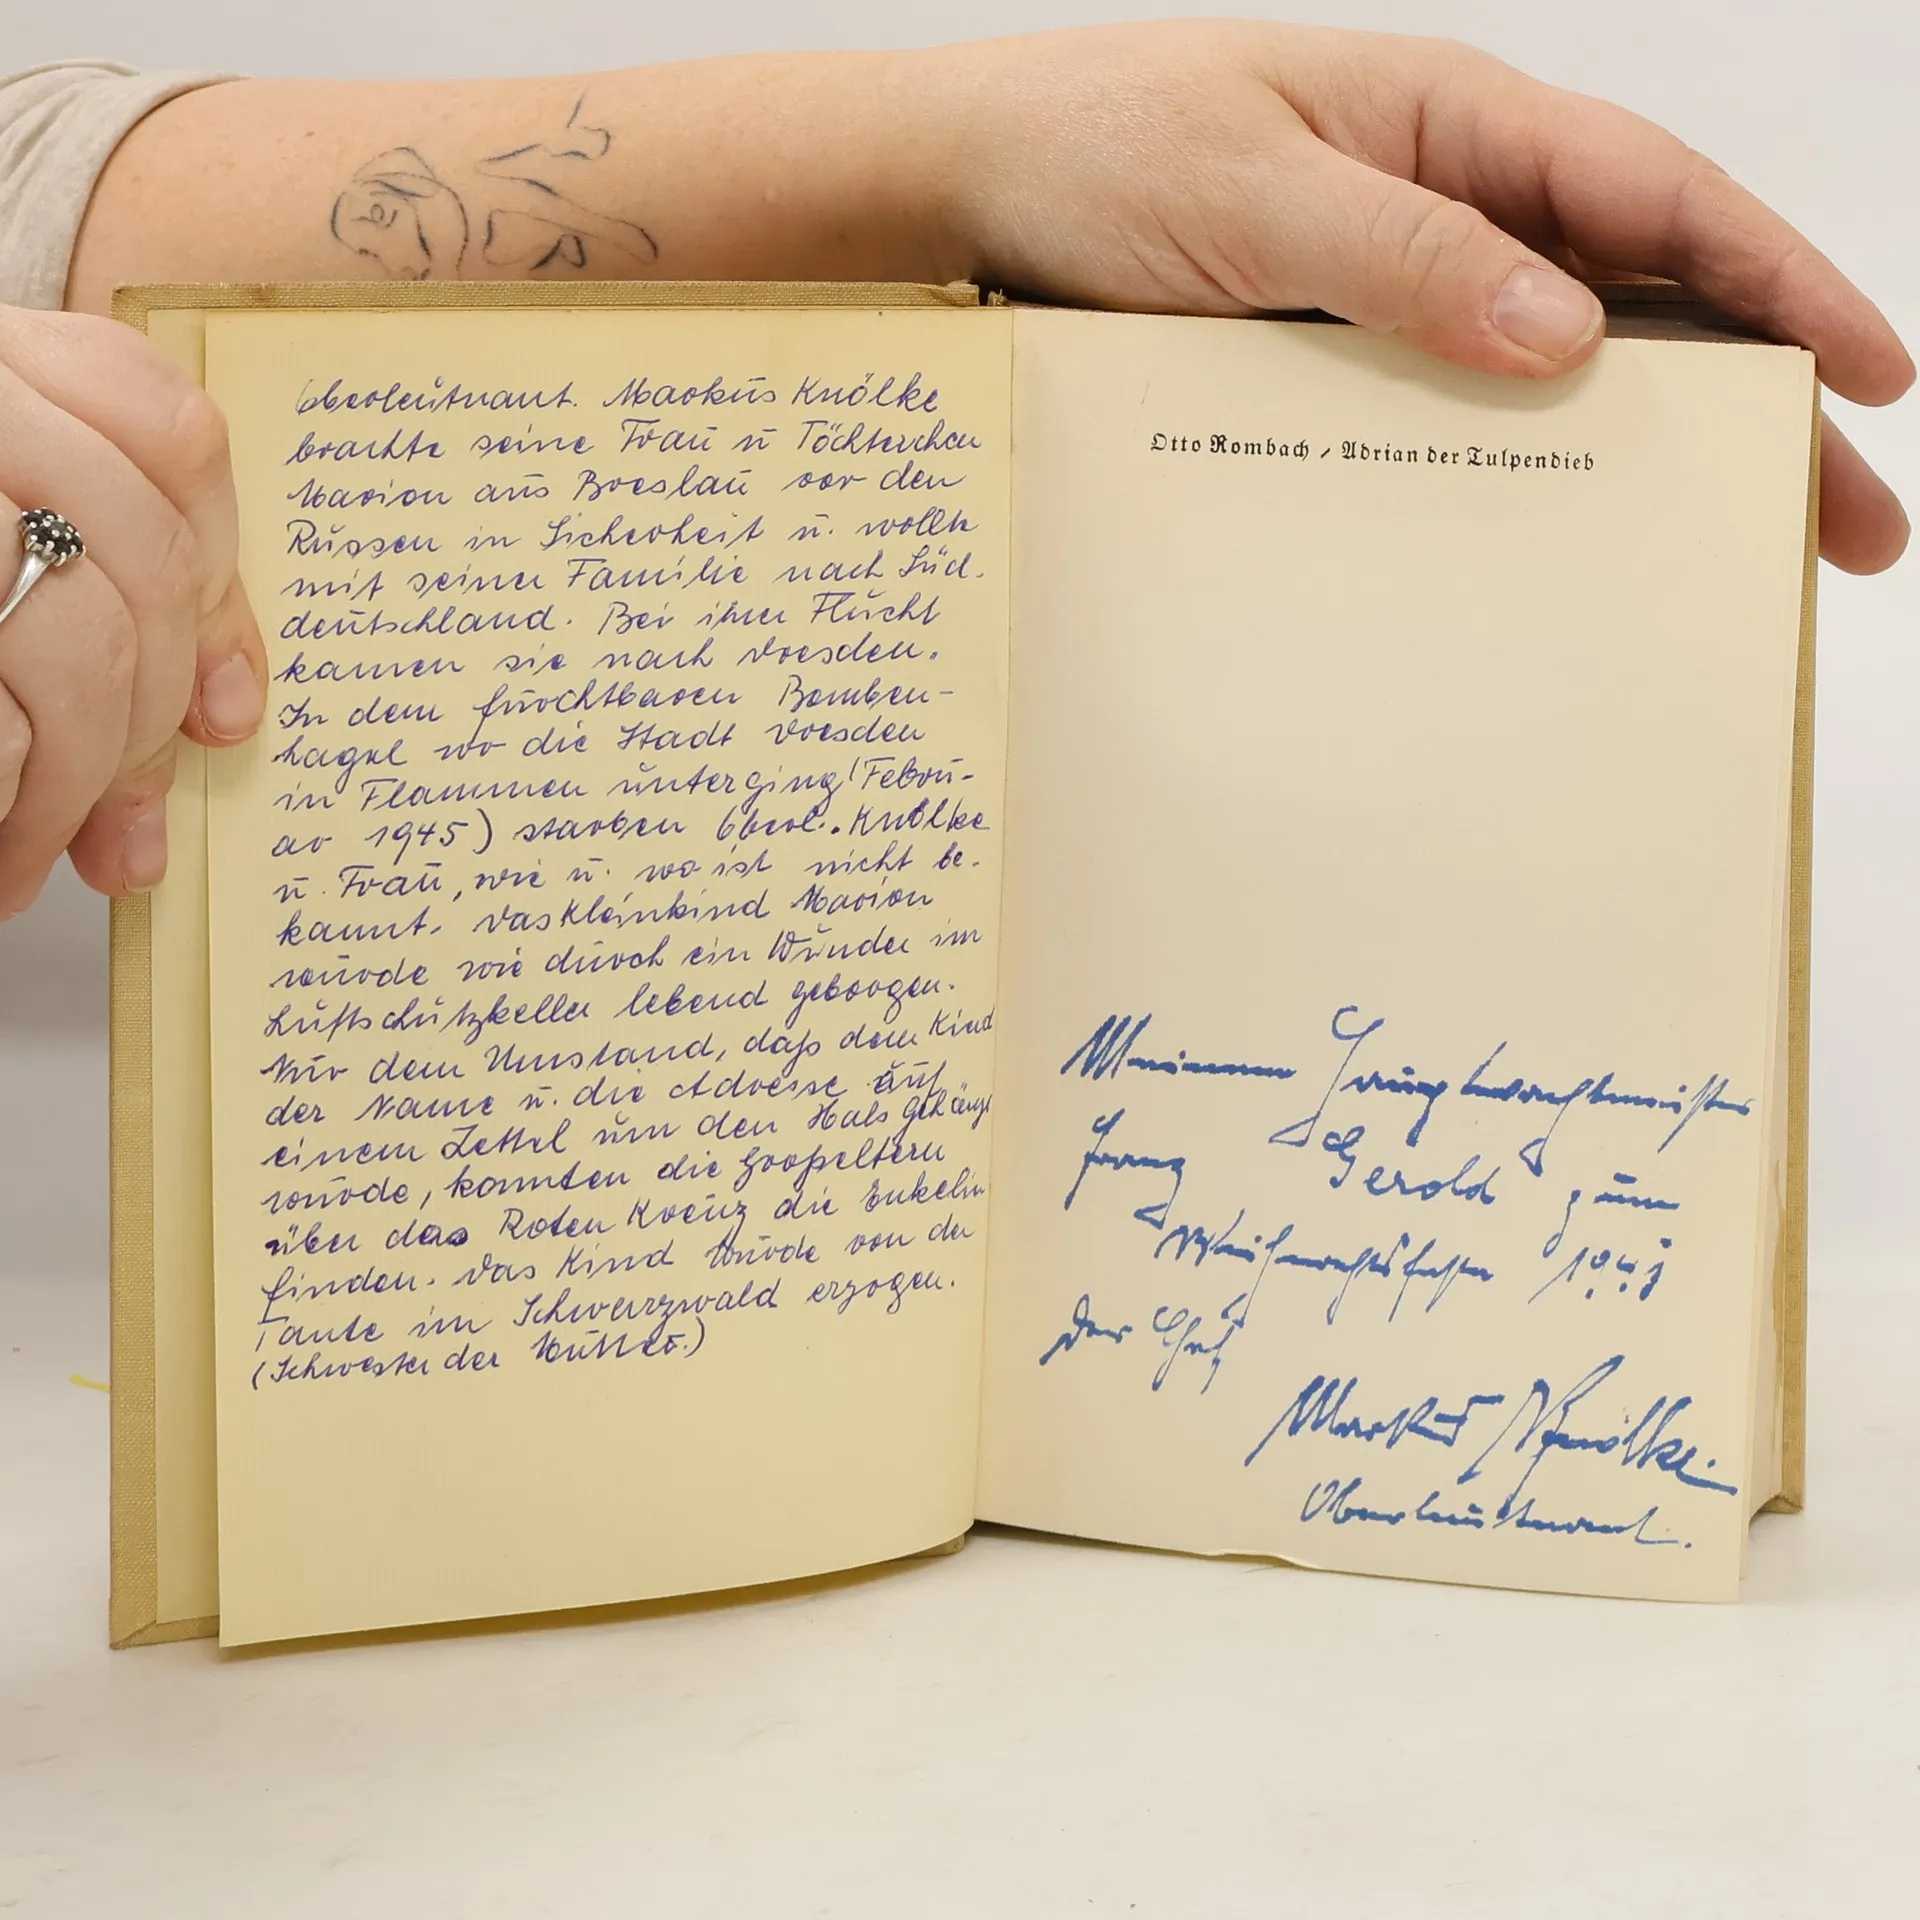 Oberleutnant. Markus Knölke
brachte seine Frau u Töchterchen
Marion aus Breslau vor den
Russen in Sicherheit u. wollte
mit seiner Familie nach Süd.
deutschland. Bei ihrer Flucht
kamen sie nach Dresden.
In dem furchtbaren Bomben-
hagel wo die Stadt Dresden
in Flammen unterging (Febru-
ar 1945) starben Oberl. Knölke
u. Frau, wie u. wo ist nicht be.
kannt. Das Kleinkind Marion
wurde wie durch ein Wunder im
Luftschutzkeller lebend geborgen.
Nur dem Umstand, daß dem Kind
der Name u. die Adresse auf
einem Zettel um den Hals gehängt
wurde, konnten die Großeltern
über das Roten Kreuz die Enkelin
finden. Das Kind wurde von der
Tante im Schwarzwald erzogen.
(Schwester der Mutter.)
Otto Rombach / Adrian der Tulpendieb
Meinem Hauptwachtmeister
Franz Gerold zum
Weihnachtsfeste
Der Chef
Markus Knölke.
Oberleutnant.